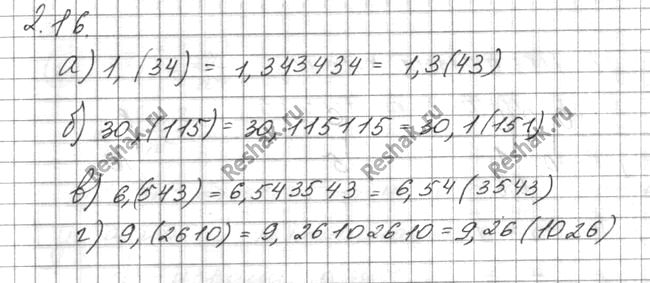 2.16.
а) 1,(34) = 1,343434 = 1,3(43)
б) 30,(115) = 30,115115 = 30,1(151)
в) 6,(543) = 6,543543 = 6,54(3543)
г) 9,(2610) = 9, 26102610 = 9,26(1026)
Reshak.ru Reshak.ru Reshak.ru Reshak.ru